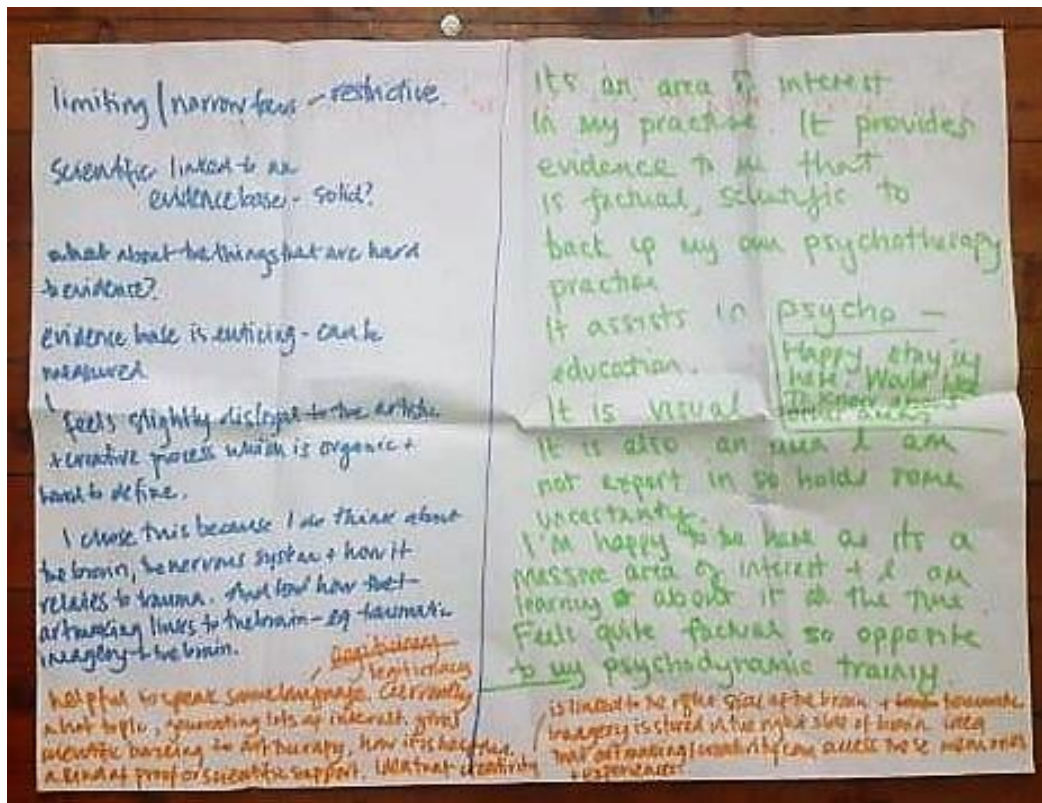 limiting / narrow focus - restrictive.
Scientific linked to an
evidence base - solid?
what about the things that are hard
to evidence?
evidence base is enticing - can be
measured
feels slightly disloyal to the artistic
+ creative process which is organic +
hard to define.
I chose this because I do think about
the brain, the nervous system + how it
relates to trauma. And how that
artmaking links to the brain - eg traumatic
imagery + the brain.
legitimacy
helpful to speak same language. Currently
a hot topic, generating lots of interest, gives
scientific backing to art therapy, how it is
a kind of proof or scientific support. Idea that creativity
It's an area of interest
in my practise. It provides
evidence to me that
is factual, scientific to
back up my own psychotherapy
practise
It assists in psycho -
education.
Happy stay in
here. Would like
to know about
other areas
It is visual
It is also an area I am
not expert in so holds some
uncertanty.
I'm happy to be here as its a
massive area of interest + I am
learning about it all the time.
Feels quite factual so opposite
to my psychodynamic training.
is linked to the right side of the brain + traumatic
imagery is stored in the right side of brain idea
that art making/creativity can access these memories
+ experiences.